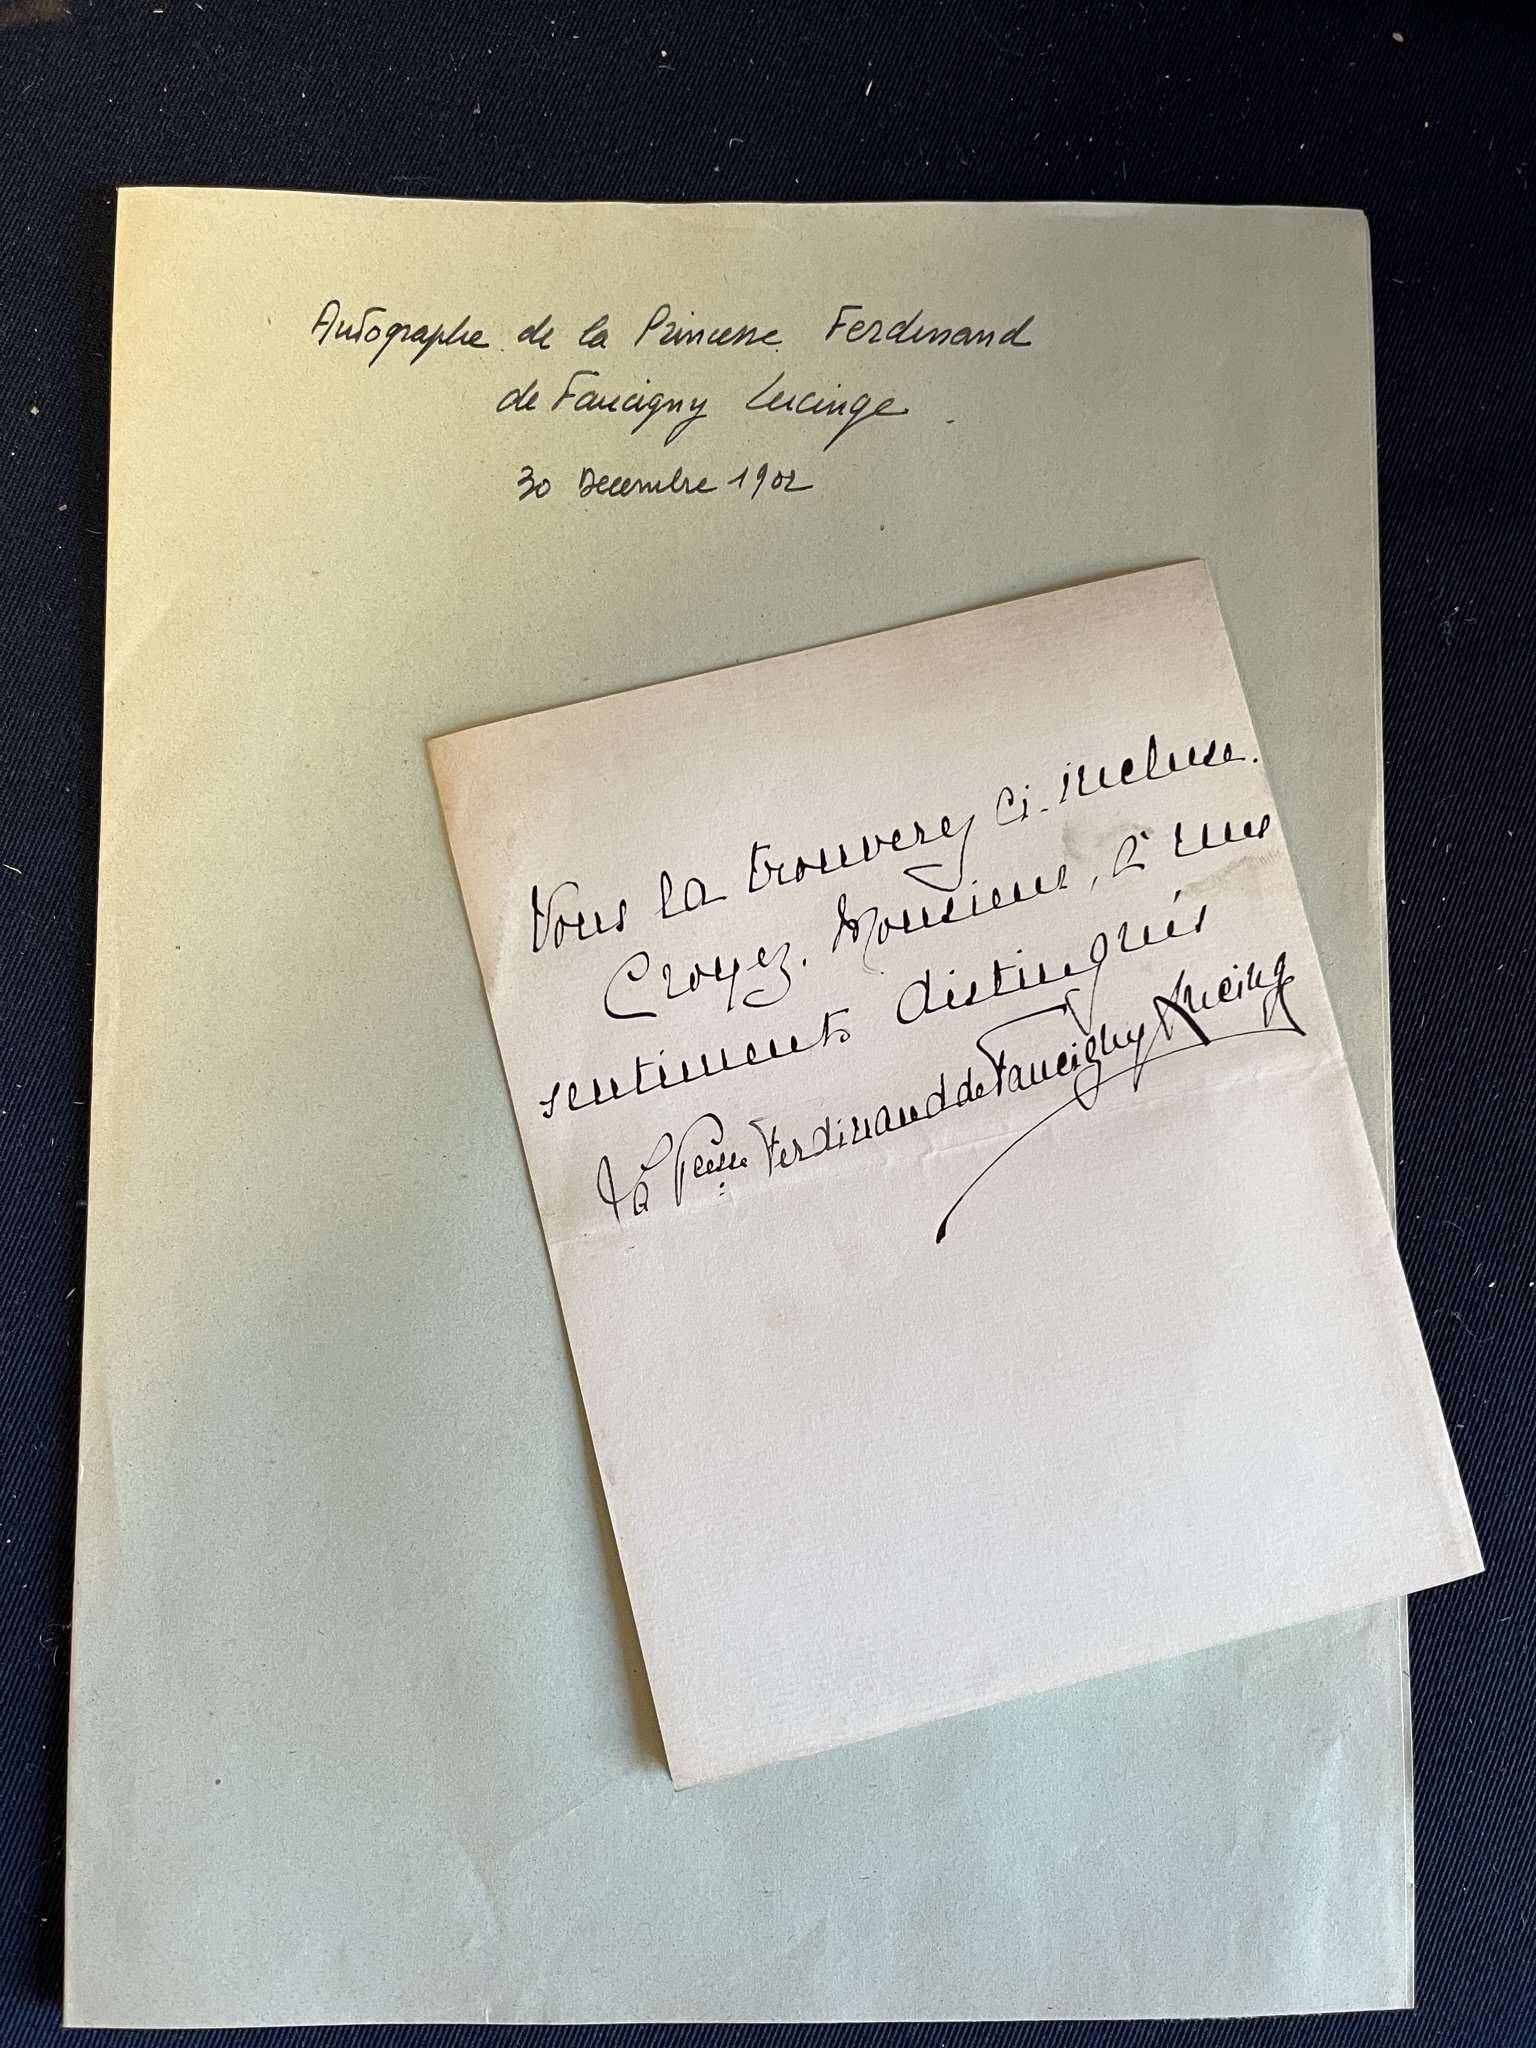 Autographe de la Princesse Ferdinand
de Faucigny Lucinge
30 Decembre 1902
Vous la trouverez ci-incluse.
Croyez, Monsieur, à mes
sentiments distingués
La Pcesse Ferdinand de Faucigny Lucinge